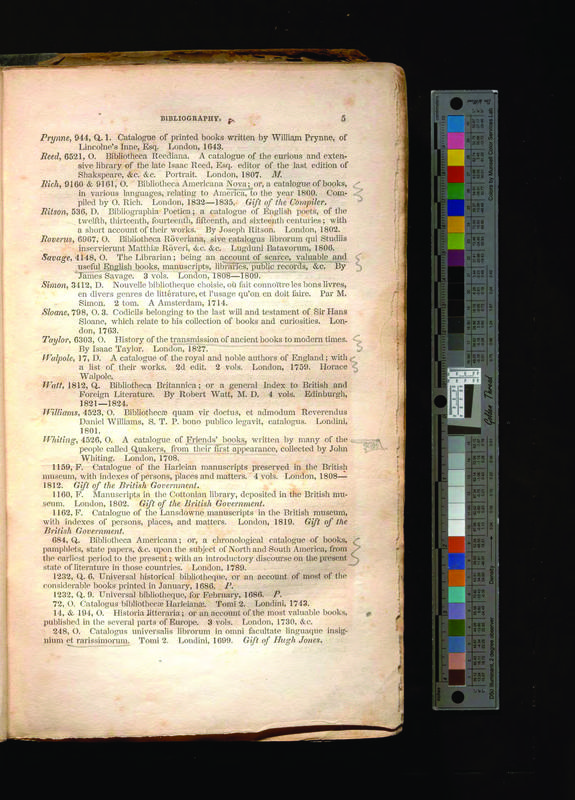 BIBLIOGRAPHY. 5
Prynne, 944, Q. 1. Catalogue of printed books written by William Prynne, of
Lincolne's Inne, Esq. London, 1643.
Reed, 6521, O. Bibliotheca Reediana. A catalogue of the curious and exten-
sive library of the late Isaac Reed, Esq. editor of the last edition of
Shakspeare, &c. &c. Portrait. London, 1807. M.
Rich, 9160 & 9161, O. Bibliotheca Americana Nova; or, a catalogue of books,
in various languages, relating to America, to the year 1800. Com-
piled by O. Rich. London, 1832—1835. Gift of the Compiler.
Ritson, 536, D. Bibliographia Poetica; a catalogue of English poets, of the
twelfth, thirteenth, fourteenth, fifteenth, and sixteenth centuries; with
a short account of their works. By Joseph Ritson. London, 1802.
Roverus, 6967, O. Bibliotheca Röveriana, sive catalogus librorum qui Studiis
inservierunt Matthiæ Röveri, &c. &c. Lugduni Batavorum, 1806.
Savage, 4148, O. The Librarian; being an account of scarce, valuable and
useful English books, manuscripts, libraries, public records, &c. By
James Savage. 3 vols. London, 1808—1809.
Simon, 3412, D. Nouvelle bibliotheque choisie, où fait connoître les bons livres,
en divers genres de littérature, et l'usage qu'on en doit faire. Par M.
Simon. 2 tom. A Amsterdam, 1714.
Sloane, 798, O. 3. Codicils belonging to the last will and testament of Sir Hans
Sloane, which relate to his collection of books and curiosities. Lon-
don, 1763.
Taylor, 6303, O. History of the transmission of ancient books to modern times.
By Isaac Taylor. London, 1827.
Walpole, 17, D. A catalogue of the royal and noble authors of England; with
a list of their works. 2d edit. 2 vols. London, 1759. Horace
Walpole.
Watt, 1812, Q. Bibliotheca Britannica; or a general Index to British and
Foreign Literature. By Robert Watt, M. D. 4 vols. Edinburgh,
1821—1824.
Williams, 4523, O. Bibliothecæ quam vir doctus, et admodum Reverendus
Daniel Williams, S. T. P. bono publico legavit, catalogus. Londini,
1801.
Whiting, 4526, O. A catalogue of Friends' books, written by many of the
people called Quakers, from their first appearance, collected by John
Whiting. London, 1708.
1159, F. Catalogue of the Harleian manuscripts preserved in the British
museum, with indexes of persons, places and matters. 4 vols. London, 1808—
1812. Gift of the British Government.
1160, F. Manuscripts in the Cottonian library, deposited in the British mu-
seum. London, 1802. Gift of the British Government.
1162, F. Catalogue of the Lansdowne manuscripts in the British museum,
with indexes of persons, places, and matters. London, 1819. Gift of the
British Government.
684, Q. Bibliotheca Americana; or, a chronological catalogue of books,
pamphlets, state papers, &c. upon the subject of North and South America, from
the earliest period to the present; with an introductory discourse on the present
state of literature in those countries. London, 1789.
1232, Q. 6. Universal historical bibliotheque, or an account of most of the
considerable books printed in January, 1686. P.
1232, Q. 9. Universal bibliotheque, for February, 1686. P.
72, O. Catalogus bibliothecæ Harleianæ. Tomi 2. Londini, 1743.
14, & 194, O. Historia litteraria; or an account of the most valuable books,
published in the several parts of Europe. 3 vols. London, 1730, &c.
248, O. Catalogus universalis librorum in omni facultate linguaque insig-
nium et rarissimorum. Tomi 2. Londini, 1699. Gift of Hugh Jones.
Golden Thread